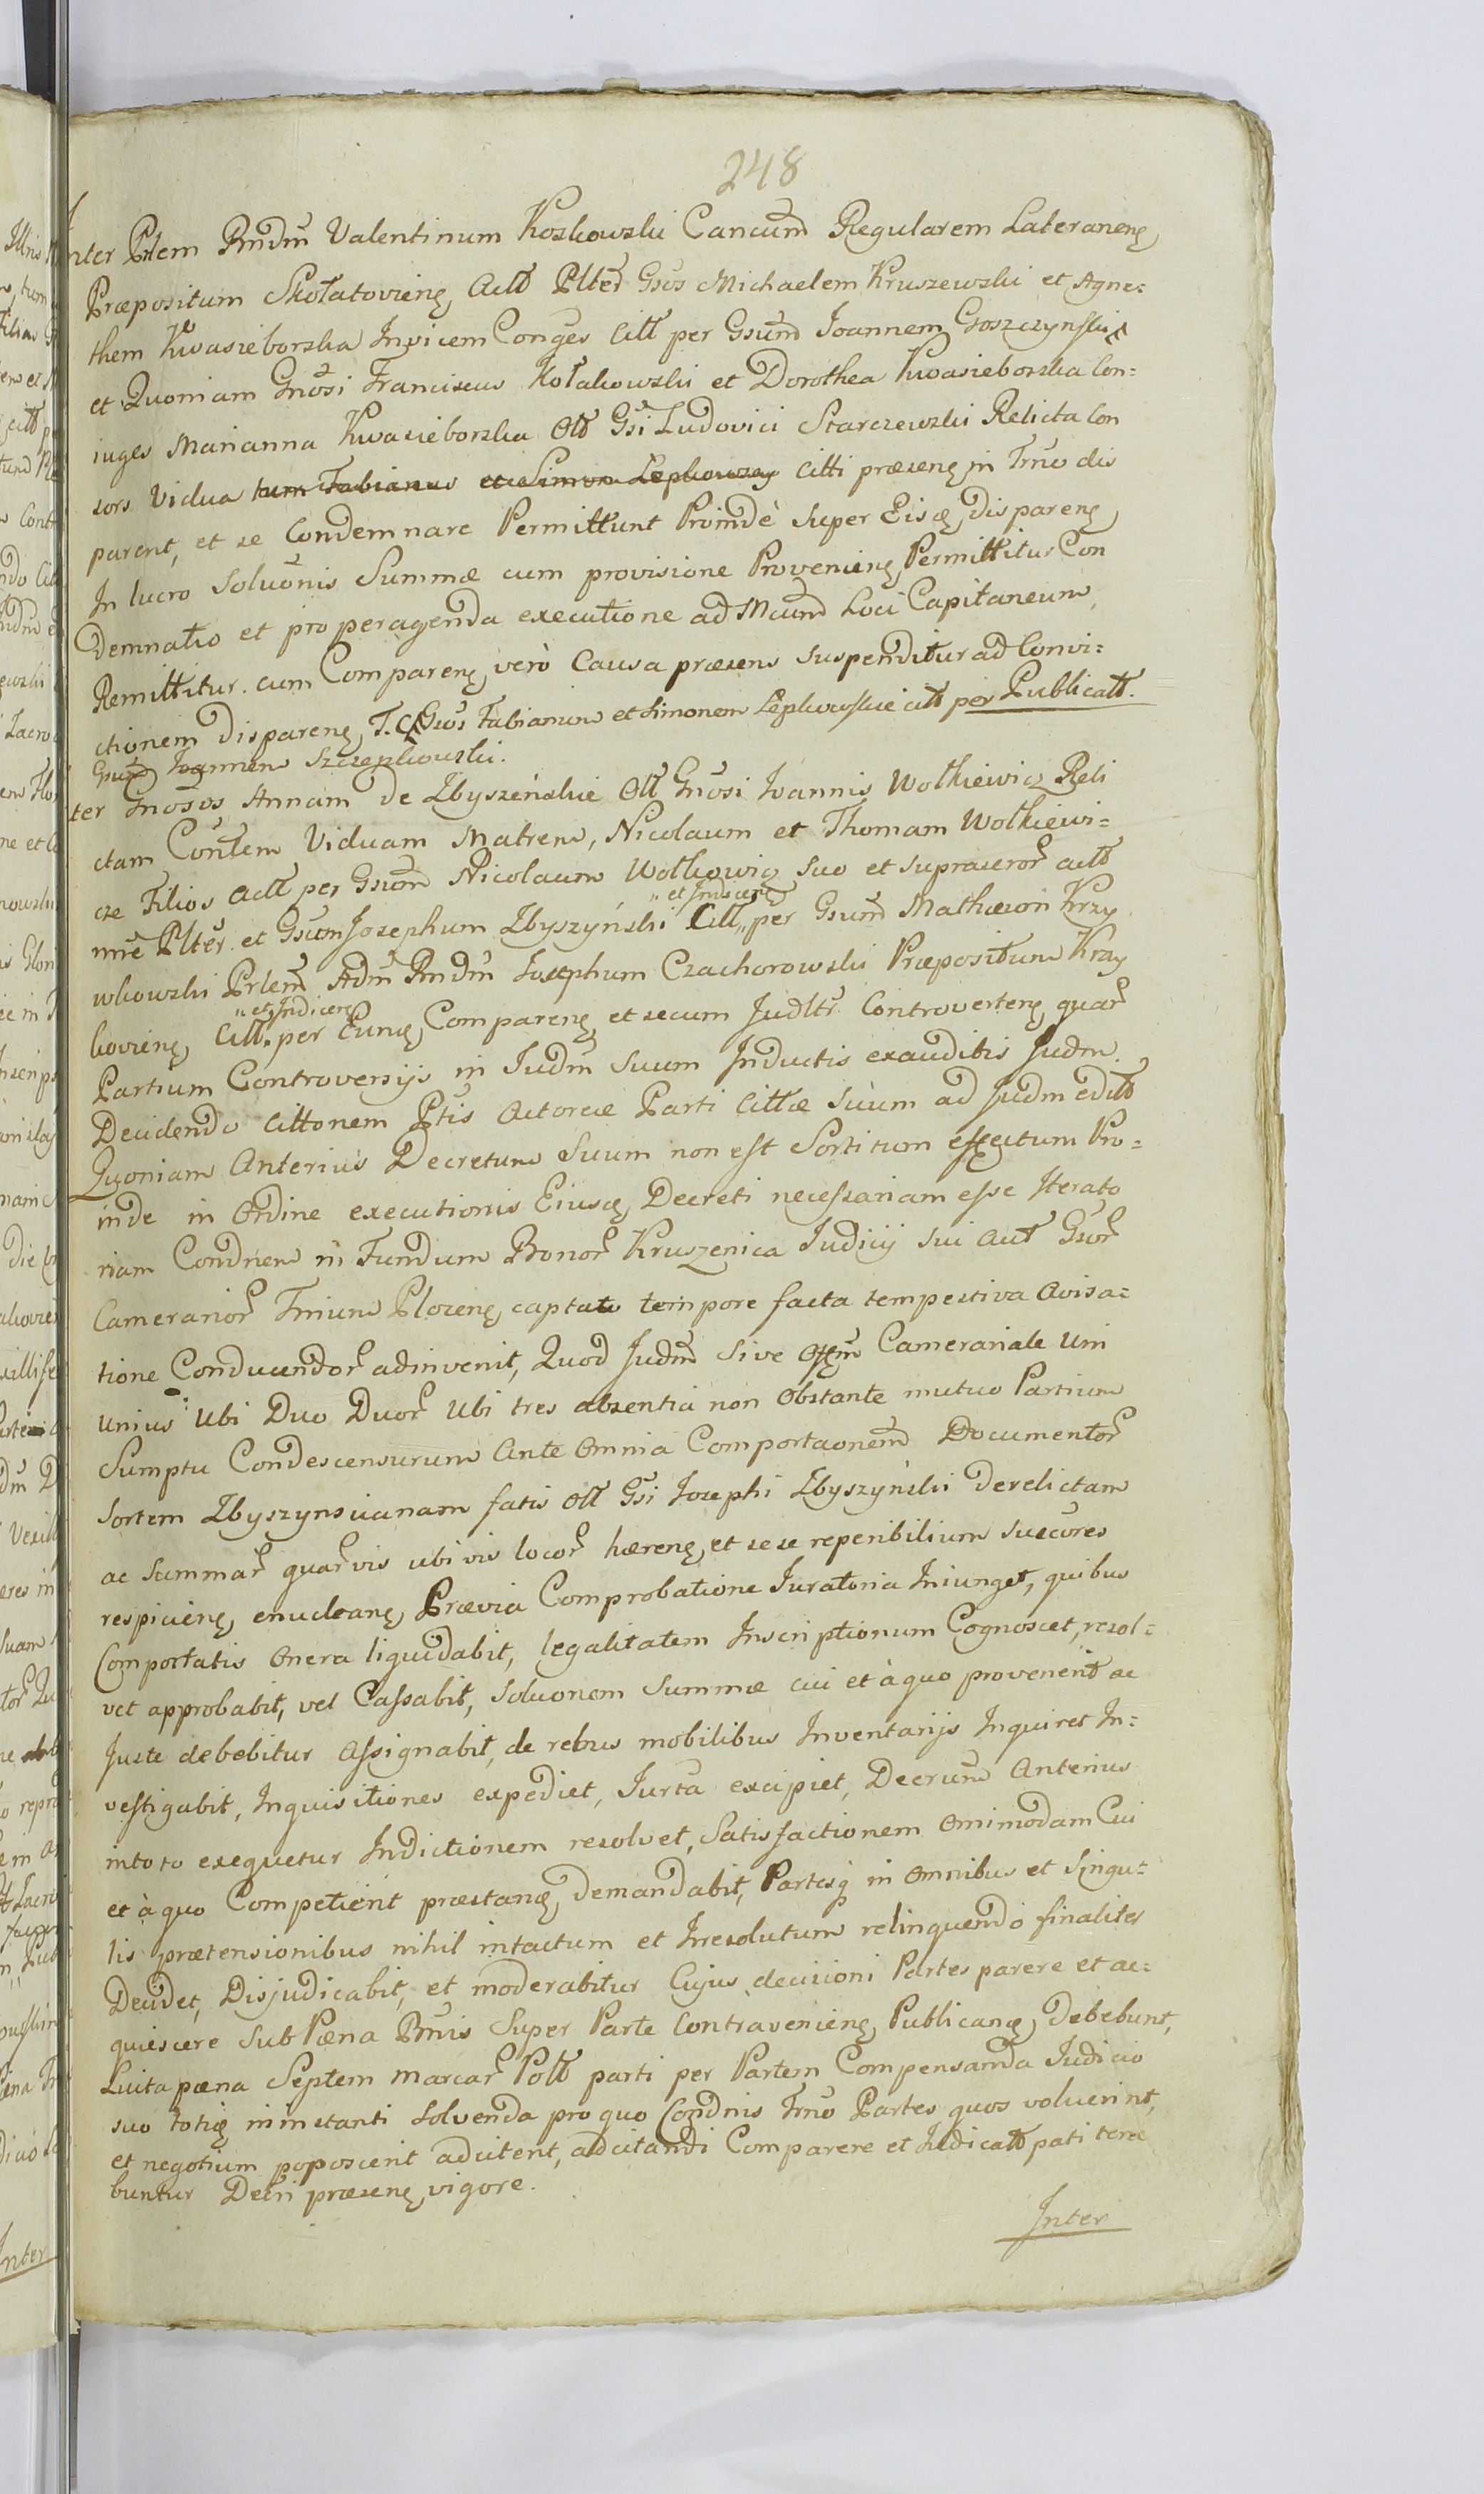 248
Inter Prlem Rndm Valentinum Koskowski Cancum Regularem Lateraneng
Præpositum Skołatovieng Actt Pltes Gsos Michaelem Kruszewski et Agne=
them Kwasieborska Invicem Conges Citt per Gsum Joannem Goszczynski
et Quoniam Gnosi Franciscus Kołakowski et Dorothea Kwasieborska Con=
iuges Marianna Kwasieborska Ott Gsi Ludovici Starczewski Relicta Con
sors Vidua tum Fabianus et Simon Lepkowscy Citti præseng in Trno dis
parent, et se Condemnare Permittunt Proindè super Eisq dispareng
In lucro Soluonis Summæ cum provisione Provenieng Permittitur Con
Demnatio et pro peragenda executione ad Mcum Loci Capitaneum
Remittitur. cum Compareng verò Causa præsens suspenditur ad Convi=
ctionem dispareng T. C Gsos Fabianum et Simonem Lepkowskie citt per Publicatt.
Gsum Joannem Szczepkowski.
ter Gnosos Annam de Zbyszeńskie Ott Gnosi Joannis Wołkiewicz Reli
ctam Contem Viduam Matrem, Nicolaum et Thomam Wołkiewi=
cze Filios Actt per Gsum Nicolaum Wołkowicz suo et supraseror actt
mne Pltes. et Gsum Josephum Zbyszyński Citt „et Indicere„ per Gsum Mathæum Krzy
wkowski Prlem Adm Rndm Josephum Czachorowski Præpositum Krzy
kovieng Citt „et Indicere„ per Eung Compareng et secum Judltr Controverteng quar
Partium Controversijs in Judm suum Inductis exauditis Judm.
Decidendo Cittonem Ptis Actoreæ Parti Cittæ suum ad Judm editt
Quoniam Anterius Decretum Suum non est Sortitum effectum Pro=
inde in Ordine executionis Eiusq Decreti necessariam esse Iterato
riam Condnem in Fundum Bonor Kruszenica Judicij sui Aut Gsor
Camerarior Trium Plozeng captato tempore facta tempestiva Avisa=
tione Conducendor adinvenit, Quod Judm sive Offm Camerariale Uni
Unius Ubi Duo Duor Ubi tres absentia non Obstante mutuo Partium
Sumptu Condescensurum Ante Omnia Comportaonem Documentor
Sortem Zbyszynscianam fatis Ott Gsi Josephi Zbyszyński derelictam
ac Summar quarvis ubi vis locor hæreng et sese reperibilium succores
respicieng enucleang Prævia Comprobatione Juratoria Iniunget, quibus
Comportatis Onera liquidabit, legalitatem Inscriptionum Cognoscet, resol=
vet approbabit, vel Cassabit, Soluonem Summæ cui et à quo provenerit ac
Juste debebitur Assignabit, de rebus mobilibus Inventarijs Inquiret In=
vestigabit, Inquisitiones expediet, Jurta excipiet, Decrum Anterius
in toto exequetur Indictionem resolvet, Satisfactionem Omimodam Cui
et à quo Competierit præstang demandabit, Partesq in Omnibus et Singu=
lis prætensionibus nihil intactum et Irresolutum relinquendo finaliter
Decidet, Disjudicabit, et moderabitur Cujus decisioni Partes parere et ac=
quiescere Sub Pæna Bnis Super Parte Contravenieng Publicang Debebunt,
Luita pæna Septem Marcar Poltt parti per Partem Compensanda Judicio
suo totiq in instanti Solvenda pro quo Condnis Trno Partes quos voluerint,
et negotium poposcerit adcitent, adcitandi Comparere et Judicatt pati tene
buntur Decri præseng vigore.
Inter